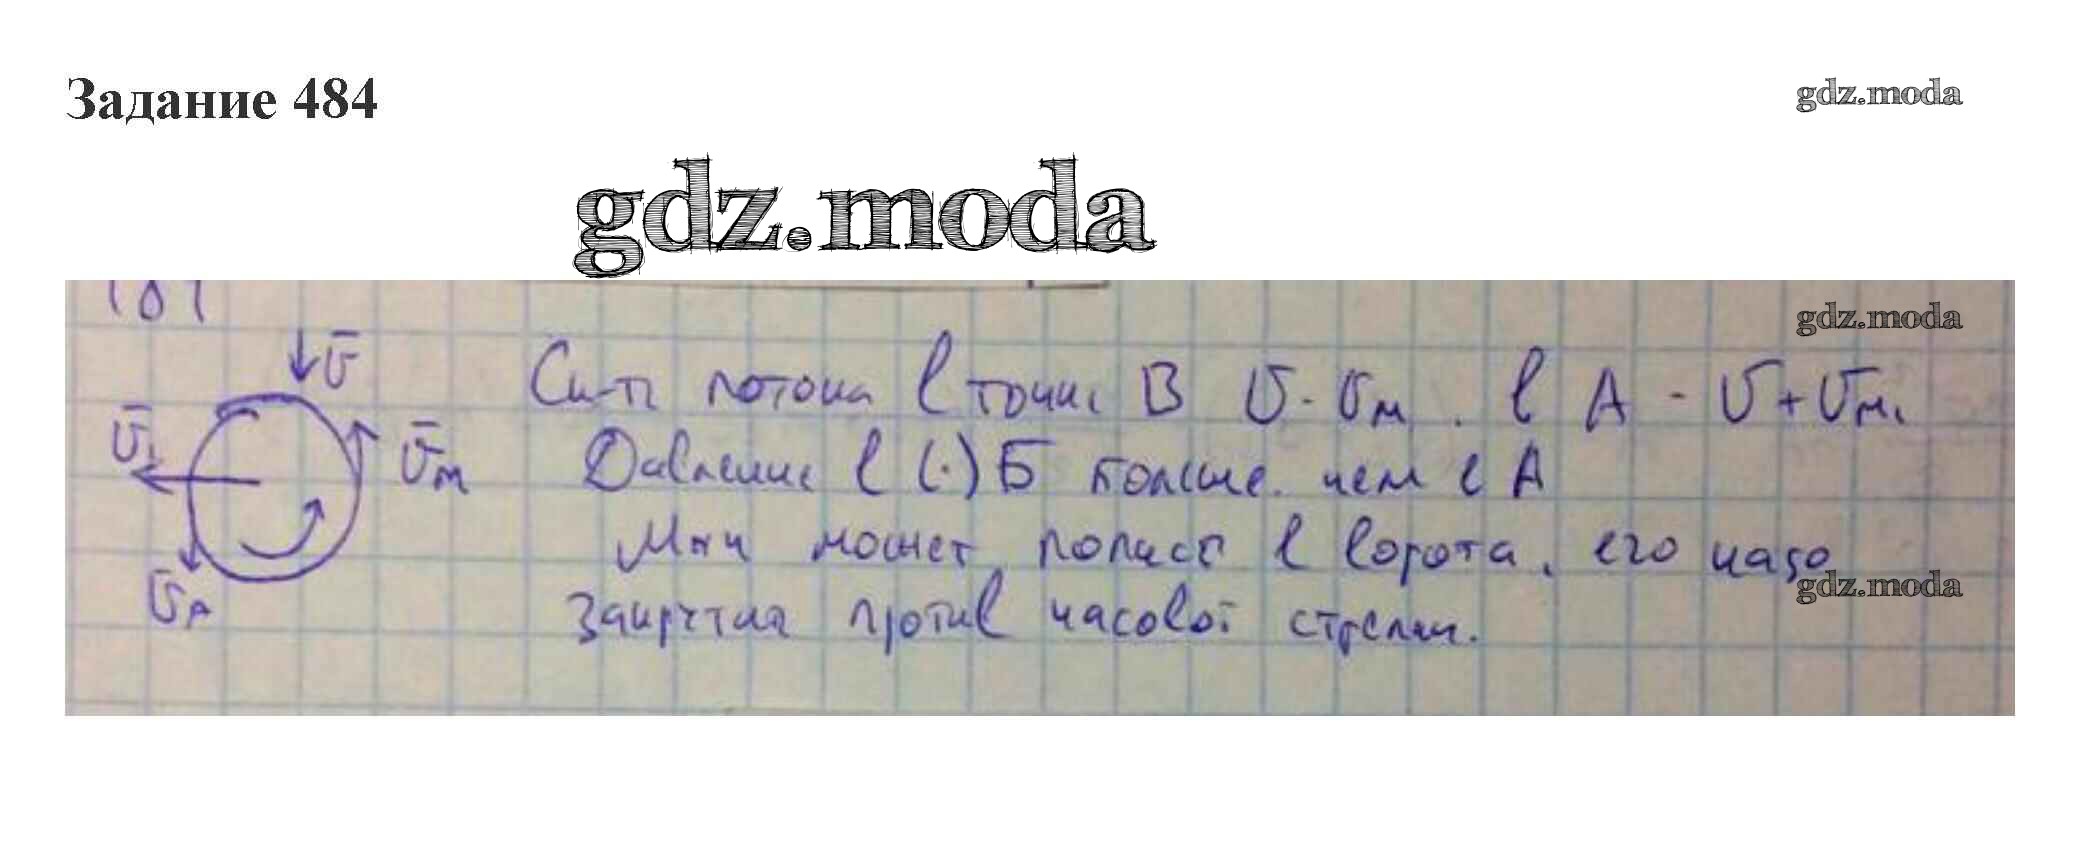 Задание 484
gdz.moda
gdz.moda
gdz.moda
v̄
v̄₁
v̄м
v̄А
потока в точке В v - vм . в А - v + vм.
Давление в (·) Б больше. чем в А
Мяч может попасть в ворота, его надо
gdz.moda
закрутить против часовой стрелки.